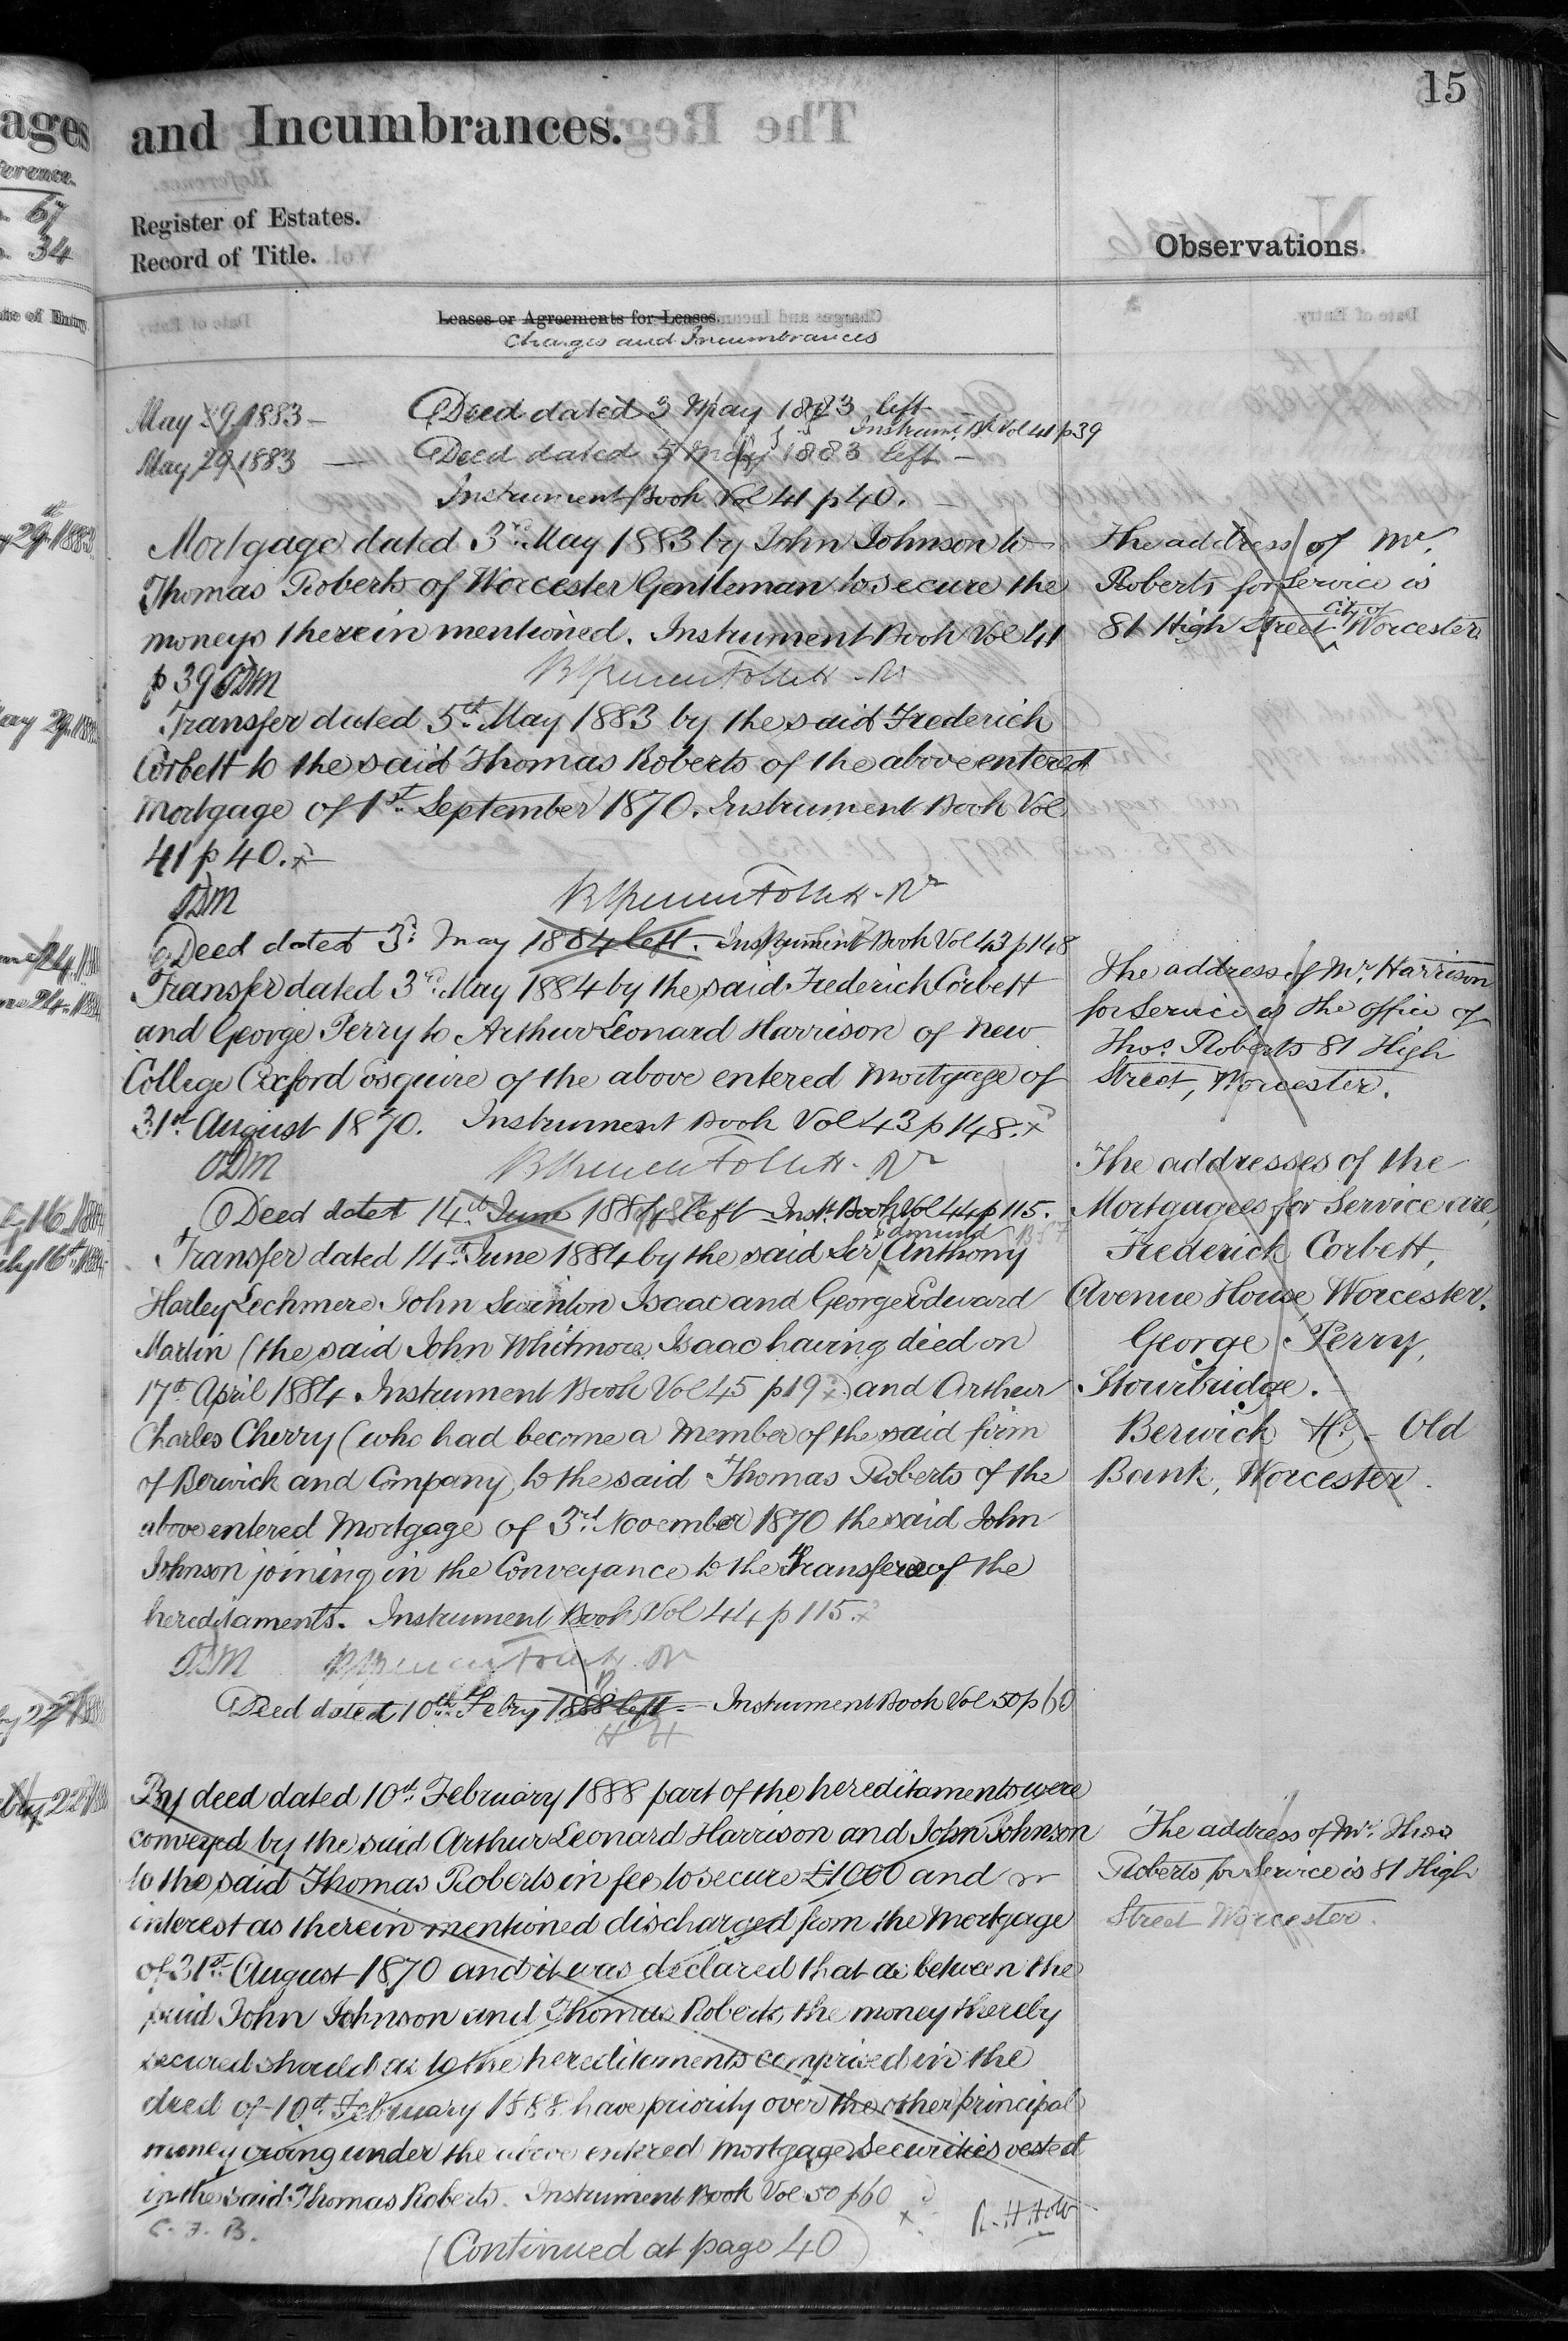 15
and Incumbrances.
Register of Estates.
Record of Title.
Observations.
Leases or Agreements for Leases.
Charges and Incumbrances
May 29 1883 — Deed dated 3 May 1883 left
Instrumt. Bk Vol 41 p 39
May 29 1883 — Deed dated 5 May 1883 left —
Instrument Book Vol 41 p 40.
Mortgage dated 3rd May 1883 by John Johnson to
Thomas Roberts of Worcester Gentleman to secure the
moneys therein mentioned. Instrument Book Vol 41
p 39
Transfer dated 5th May 1883 by the said Frederick
Corbett to the said Thomas Roberts of the above entered
Mortgage of 1st September 1870. Instrument Book Vol
41 p 40.
Deed dated 3d May 1884 left. Instrument Book Vol 43 p 148
Transfer dated 3rd May 1884 by the said Frederick Corbett
and George Perry to Arthur Leonard Harrison of New
College Oxford Esquire of the above entered Mortgage of
31st August 1870. Instrument Book Vol 43 p 148.
Deed dated 14th June 1884 left Inst. Book Vol 44 p 115.
Edmund
Transfer dated 14th June 1884 by the said Sir Anthony
Harley Lechmere John Swinton Isaac and George Edward
Martin (the said John Whitmore Isaac having died on
17th April 1884. Instrument Book Vol 45 p 19) and Arthur
Charles Cherry (who had become a Member of the said firm
of Berwick and Company) to the said Thomas Roberts of the
above entered Mortgage of 3rd November 1870 the said John
Johnson joining in the Conveyance to the Transferee of the
hereditaments. Instrument Book Vol 44 p 115.
Deed dated 10th Febry 1888 left — Instrument Book Vol 50 p 60
By deed dated 10th February 1888 part of the hereditaments were
conveyed by the said Arthur Leonard Harrison and John Johnson
to the said Thomas Roberts in fee to secure £1000 and
interest as therein mentioned discharged from the Mortgage
of 31st August 1870 and it was declared that as between the
said John Johnson and Thomas Roberts the money thereby
secured should as to the hereditaments comprised in the
deed of 10th February 1888 have priority over the other principal
money owing under the above entered Mortgage Securities vested
in the said Thomas Roberts. Instrument Book Vol 50 p 60
C. F. B.
(Continued at page 40)
The address of Mr.
Roberts for Service is
city of
81 High Street Worcester
The address of Mr. Harrison
for Service is the office of
Thos. Roberts 81 High
Street, Worcester.
The addresses of the
Mortgagees for Service are,
Frederick Corbett,
Avenue House, Worcester.
George Perry,
Stourbridge.
Berwick — Old
Bank, Worcester.
The address of Mr. Thos
Roberts for Service is 81 High
Street Worcester.